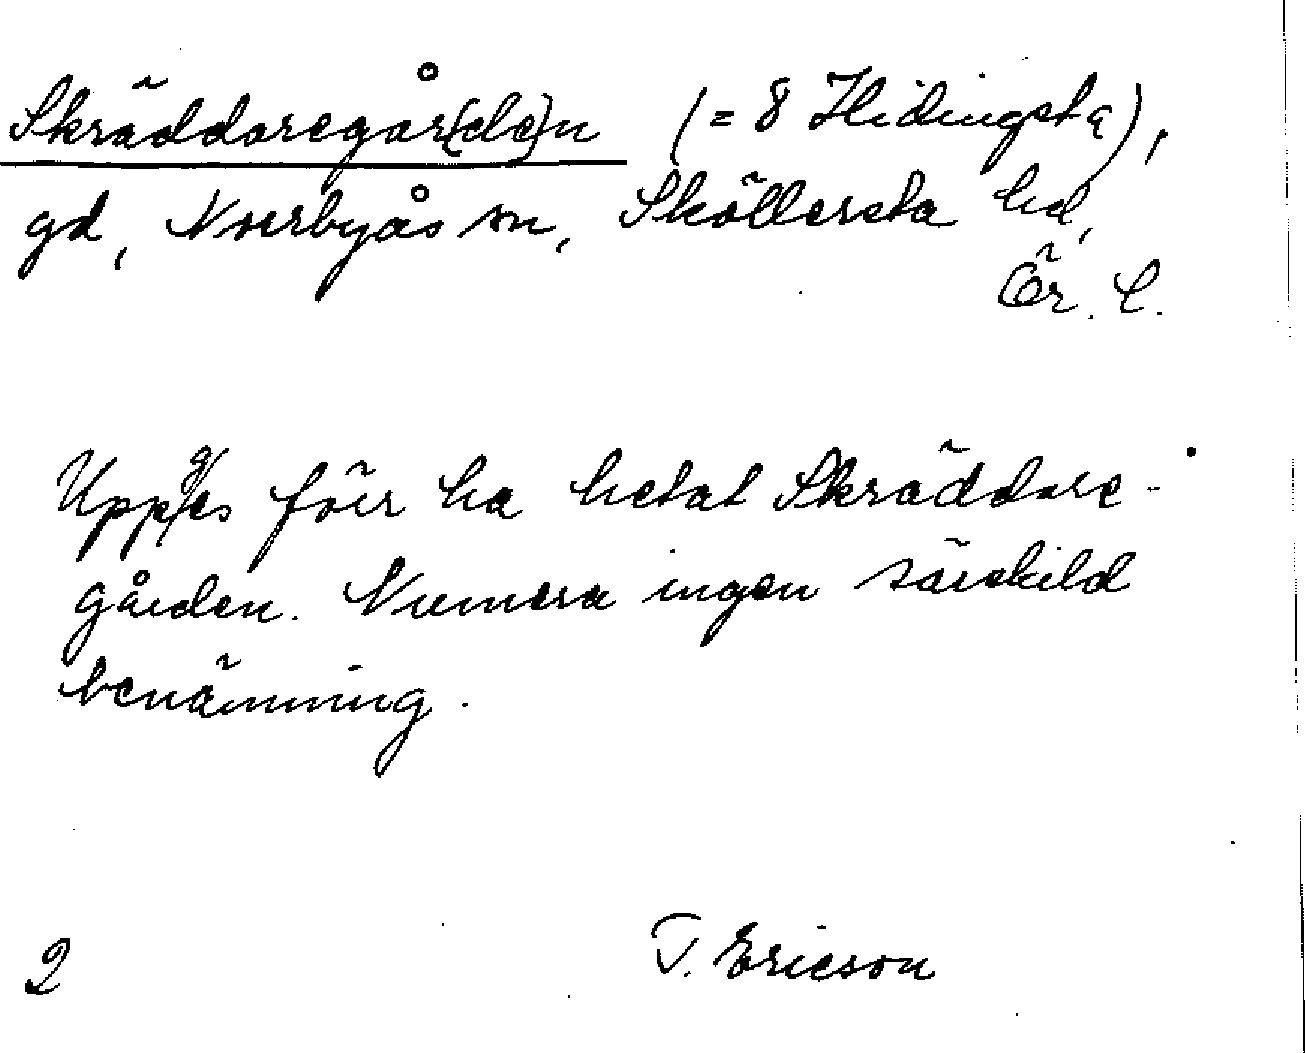 Skräddaregår(de)n (= 8 Hidingsta),
gd, Norrbyås sn, Sköllersta hd,
Ör. l.
Uppges förr ha hetat Skräddare-
gården. Numera ingen särskild
benämning.
2 T. Ericson